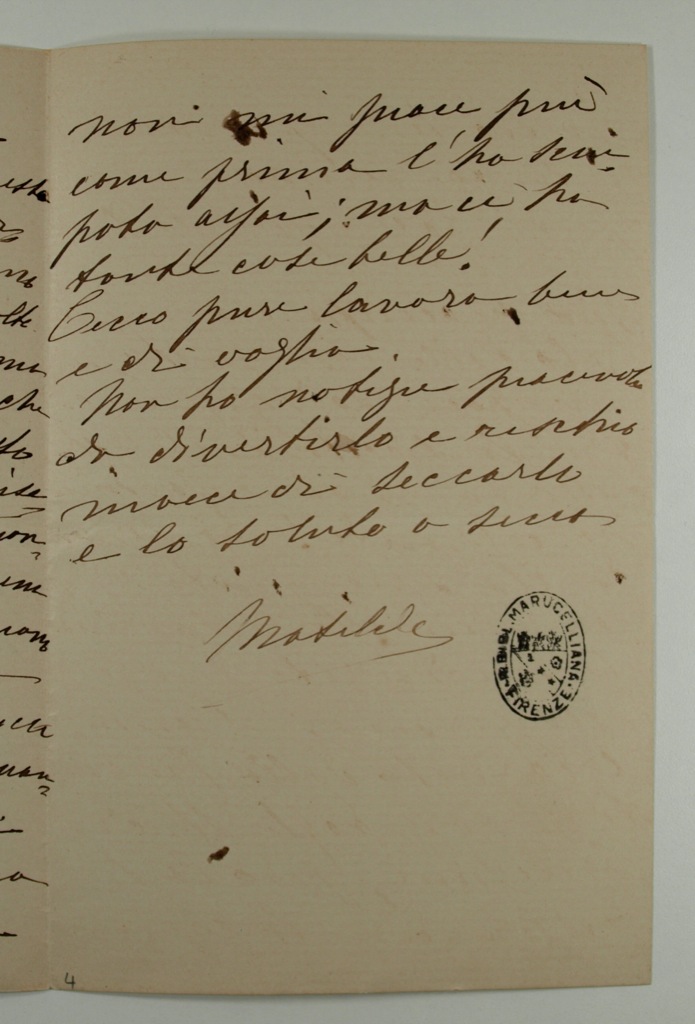 non mi piace più
come prima l'ha sciu-
pata assai; ma ci ha
tante cose belle!
Cecco pure lavora bene
e di voglia.
Non ho notizie piacevoli
da divertirlo e rischio
invece di seccarlo
e lo saluto a
Matilde
R. BIBL. MARUCELLIANA
FIRENZE
4